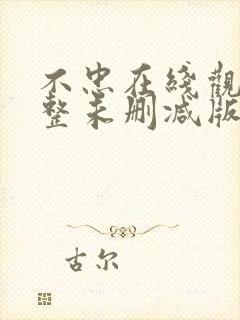 不忠在綫觀
整未删减版
古尔